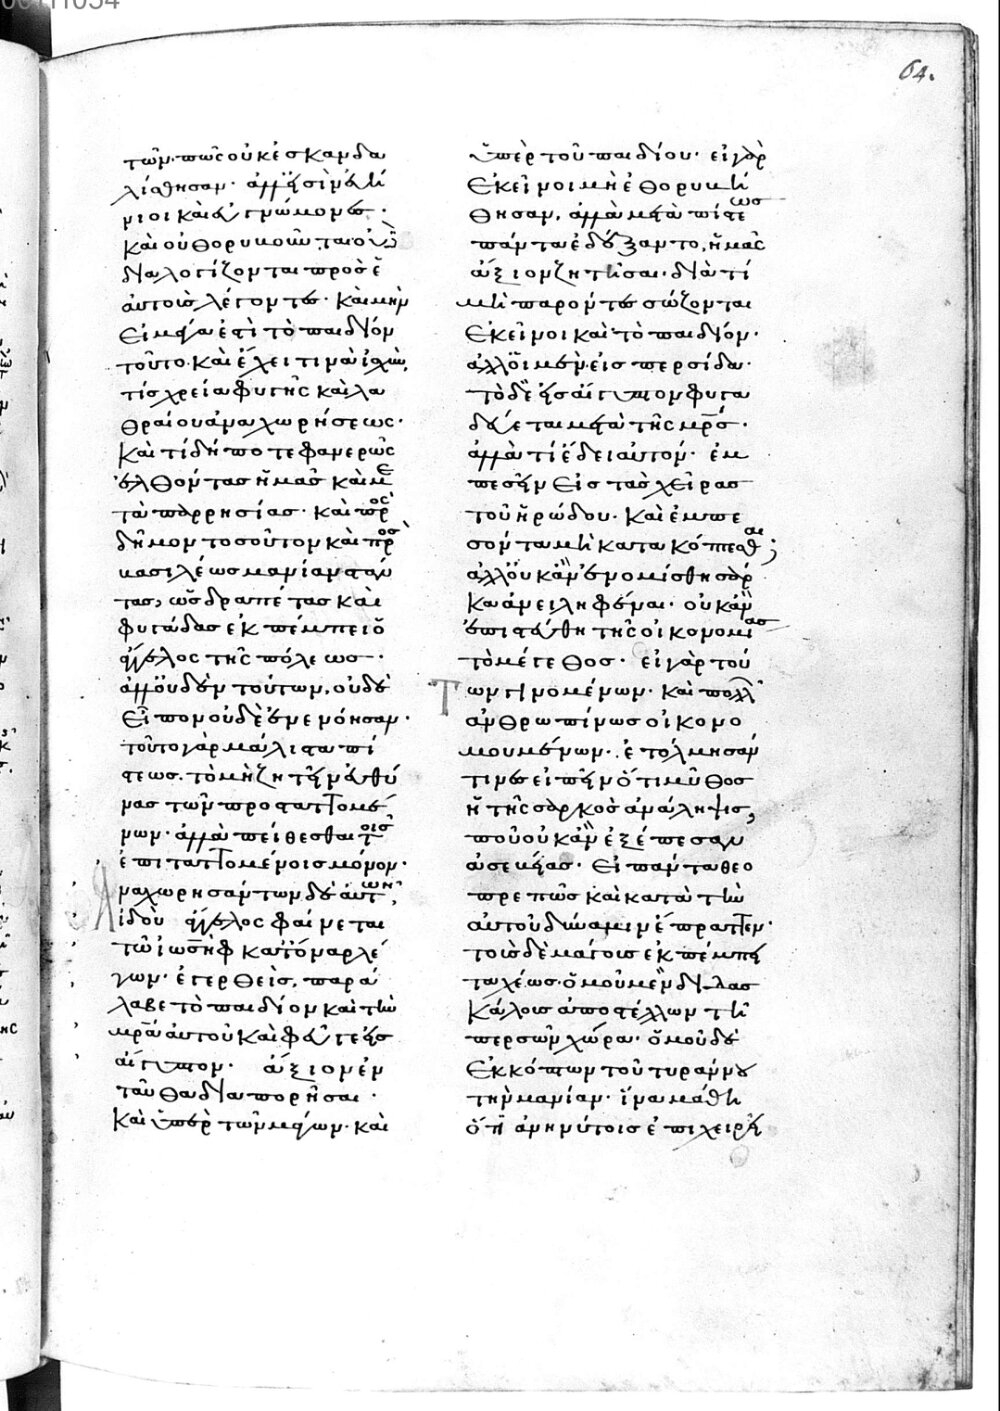 64.
των· πῶς οὐκ ἐσκανδα
λίσθησαν· ἀλλ' εἰσὶν ἀλη
νιοι καὶ εὐγνώμονες·
καὶ οὐ θορυβοῦνται οὐ
διαλογίζονται πρὸς ἑ
αυτοὺς λέγοντες· καὶ μὴν
εἰ μέγα ἐστὶ τὸ παιδίον
τοῦτο· καὶ ἔχει τινὰ ἰσχὺν,
τίς χρεία φυγῆς καὶ λα
θραίου ἀναχωρήσεως·
καὶ τί δήποτε φανερῶς
ἐλθόντας ἡμᾶς καὶ με
τὰ παρρησίας· καὶ πρὸς
δῆμον τοσοῦτον καὶ πρὸς
βασιλέως μανίαν στάν
τας, ὡς δραπέτας καὶ
φυγάδας ἐκπέμπει ὁ
ἄγγελος τῆς πόλεως·
ἀλλ' οὐδὲν τούτων, οὐδὲ
εἶπον οὐδὲ ἐνενόησαν·
τοῦτο γὰρ μάλιστα πί
στεως. τὸ μὴ ζητεῖν εὐθύ
νας τῶν προσταττομέ
νων· ἀλλὰ πείθεσθαι τοῖς
ἐπιταττομένοις μόνον·
Ἀναχωρησάντων δὲ αὐτῶν,
ἰδοὺ ἄγγελος φαίνεται
τῶ ἰωσὴφ κατ' ὄναρ λέ
γων· ἐγερθεὶς, παρά
λαβε τὸ παιδίον καὶ τὴν
μρα αὐτοῦ καὶ φεῦγε εἰς
αἴγυπτον· ἄξιον ἐν
ταῦθα διαπορῆσαι·
καὶ ὑπὲρ τῶν μάγων· καὶ
ὑπὲρ τοῦ παιδίου· εἰ γὰρ
ἐκεῖνοι μὴ ἐθορυβή
θησαν, ἀλλὰ μετὰ πίστεως
πάντα ἐδέξαντο, ἡμᾶς
ἄξιον ζητῆσαι· διὰ τί
μὴ παρόντες σώζονται
ἐκεῖνοι καὶ τὸ παιδίον·
ἀλλ' οἱ μὲν εἰς περσίδα·
τὸ δὲ εἰς αἴγυπτον φυγα
δεύεται μετὰ τῆς μρς·
ἀλλὰ τί ἔδει αὐτὸν· ἐμ
πεσεῖν εἰς τὰς χεῖρας
τοῦ ἡρώδου· καὶ ἐμπε
σόντα μὴ κατακόπτεσθαι;
ἀλλ' οὐκ ἂν ἐνομίσθη σάρ
κα ἀνειληφέναι· οὐκ ἂν
ἐπιστεύθη τῆς οἰκονομίας
τὸ μέγεθος· εἰ γὰρ τού
Των γινομένων· καὶ πολλὰ
ἀνθρωπίνως οἰκονο
μουμένων· ἐτόλμησάν
τινες εἰπεῖν ὅτι μῦθος
ἡ τῆς σαρκὸς ἀνάληψις,
ποῦ οὐκ ἂν ἐξέπεσαν
ἀσεβείας· εἰ πάντα θεο
πρεπῶς καὶ κατὰ τὴν
αὐτοῦ δύναμιν ἔπραττεν·
τοὺς δὲ μάγους ἐκπέμπει
ταχέως· ὁμοῦ μὲν διδας
κάλους ἀποστέλλων τῆ
περσῶν χώρα· ὁμοῦ δὲ
ἐκκόπτων τοῦ τυράννου
τὴν μανίαν· ἵνα μάθη
ὅτι ἀνηνύτοις ἐπιχειρεῖ